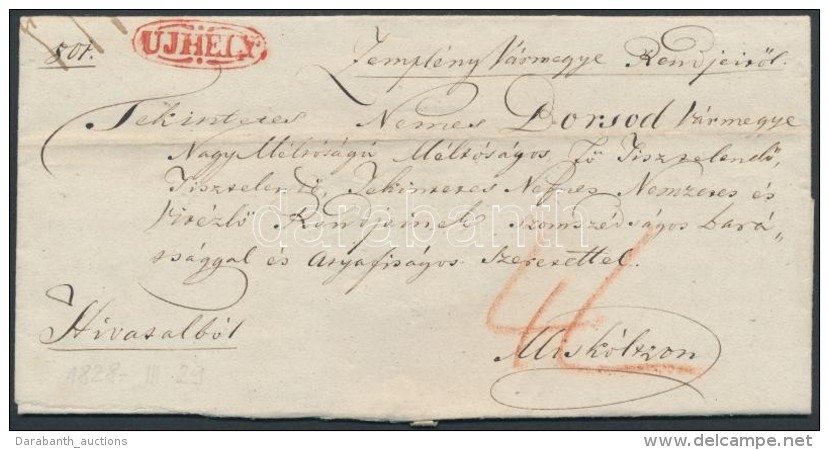 801.
UJHELY
Zemplény Vármegye Rendjeiről.
Tekintetes Nemes Borsod Vármegye
Nagy Méltóságú Méltóságos, Fő Tisztelendő,
Tisztelendő, Tekintetes Nemes Nemzetes és
Vitézlő Rendjeinek Szomszédságos bará„
tsággal és Atyafiságos Szeretettel.
Hivatalból
Miskóltzon
1828- III -29
darabanth
Darabanth_auctions
www.delcampe.net